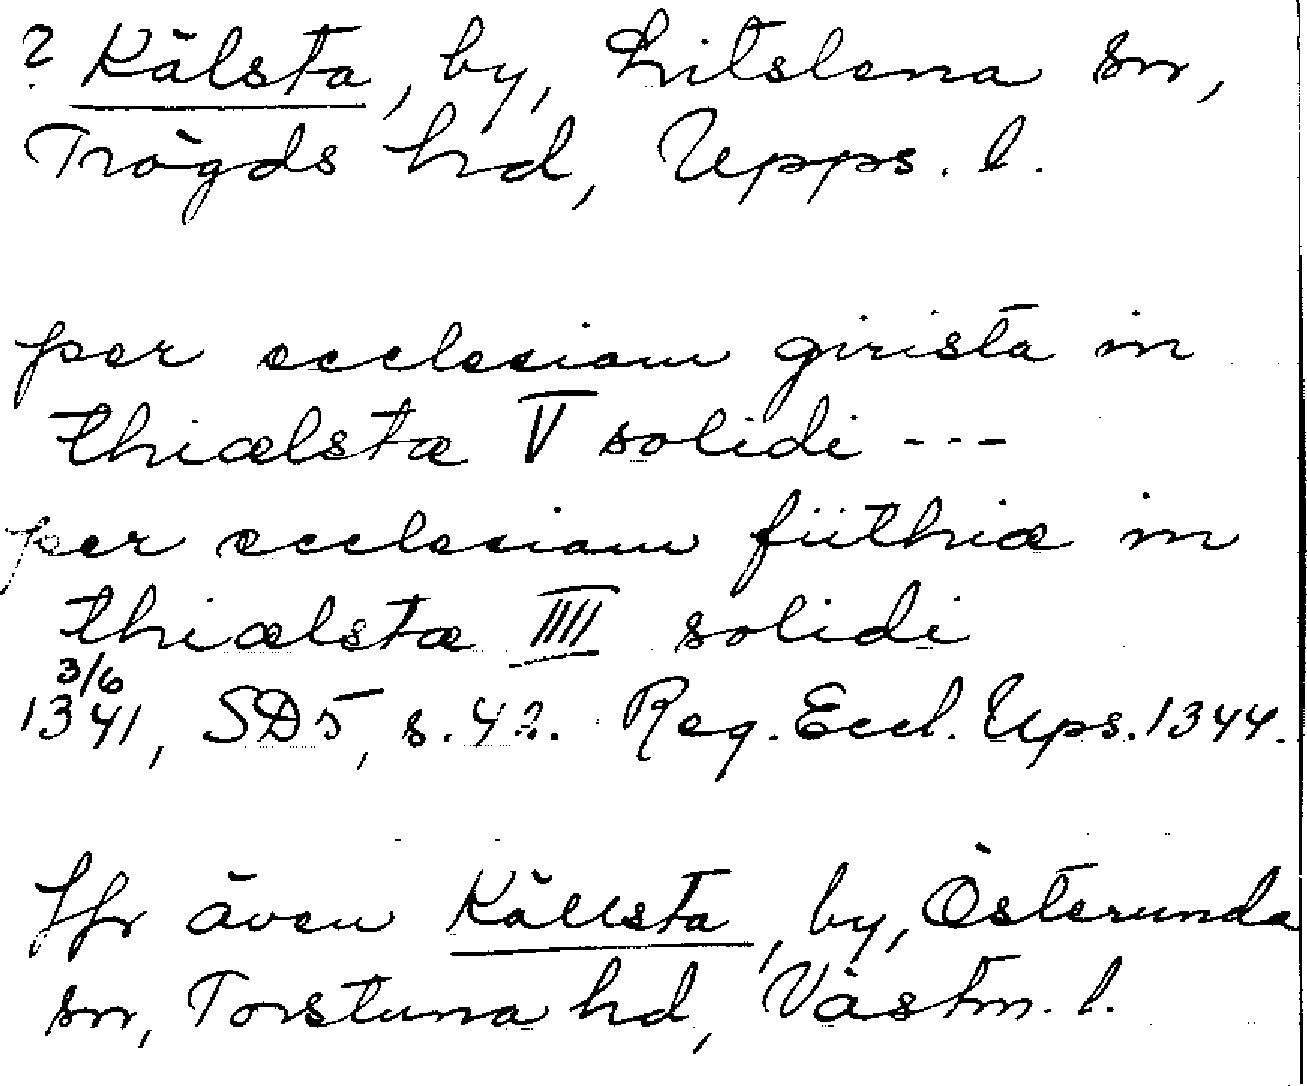 ? Kälsta, by, Litslena sn,
Trögds hd, Upps. l.
per ecclesiam girista in
thiælstæ V solidi ---
per ecclesiam fiithiæ in
thiælstæ IIII solidi
3/6
1341, SD 5, s. 42. Reg. Eccl. Ups. 1344.
Jfr även Källsta, by, Österunda
sn, Torstuna hd, Västm. l.